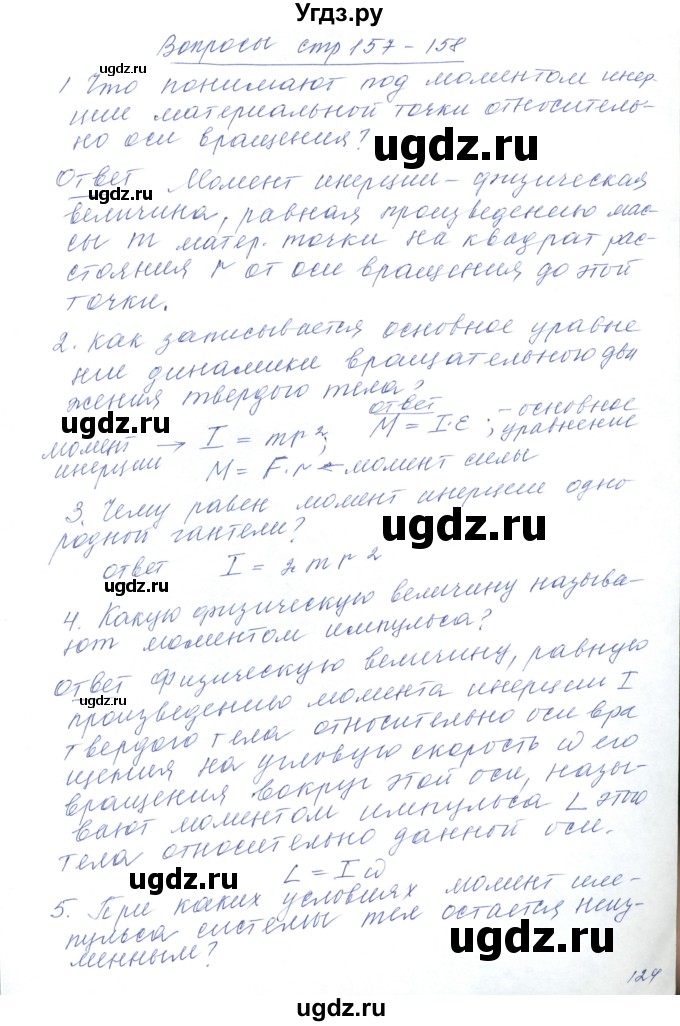 Угдз.ру
Вопросы стр 157-158
1 Что понимают под моментом инер-
ции материальной точки относитель-
но оси вращения?
ugdz.ru
Ответ Момент инерции - физическая
ugdz.ru
величина, равная произведению мас-
сы m матер. точки на квадрат рас-
стояния r от оси вращения до этой
точки.
2. Как записывается основное уравне
ние динамики вращательного дви
жения твердого тела?
ugdz.ru
ответ
момент инерции → I = mr²; M = I·ε; - основное уравнение
M = F·r ← момент силы
3. Чему равен момент инерции одно
родной гантели?
ugdz.ru
ответ I = 2mr²
ugdz.ru
4. Какую физическую величину называ-
ют моментом импульса?
Ответ Физическую величину, равную
ugdz.ru
произведению момента инерции I
твердого тела относительно оси вра
щения на угловую скорость ω его
вращения вокруг этой оси, назы-
вают моментом импульса L этого
тела относительно данной оси.
L = Iω
ugdz.ru
5. При каких условиях момент им-
пульса системы тел остается неиз-
менным?
ugdz.ru
124
ugdz.ru